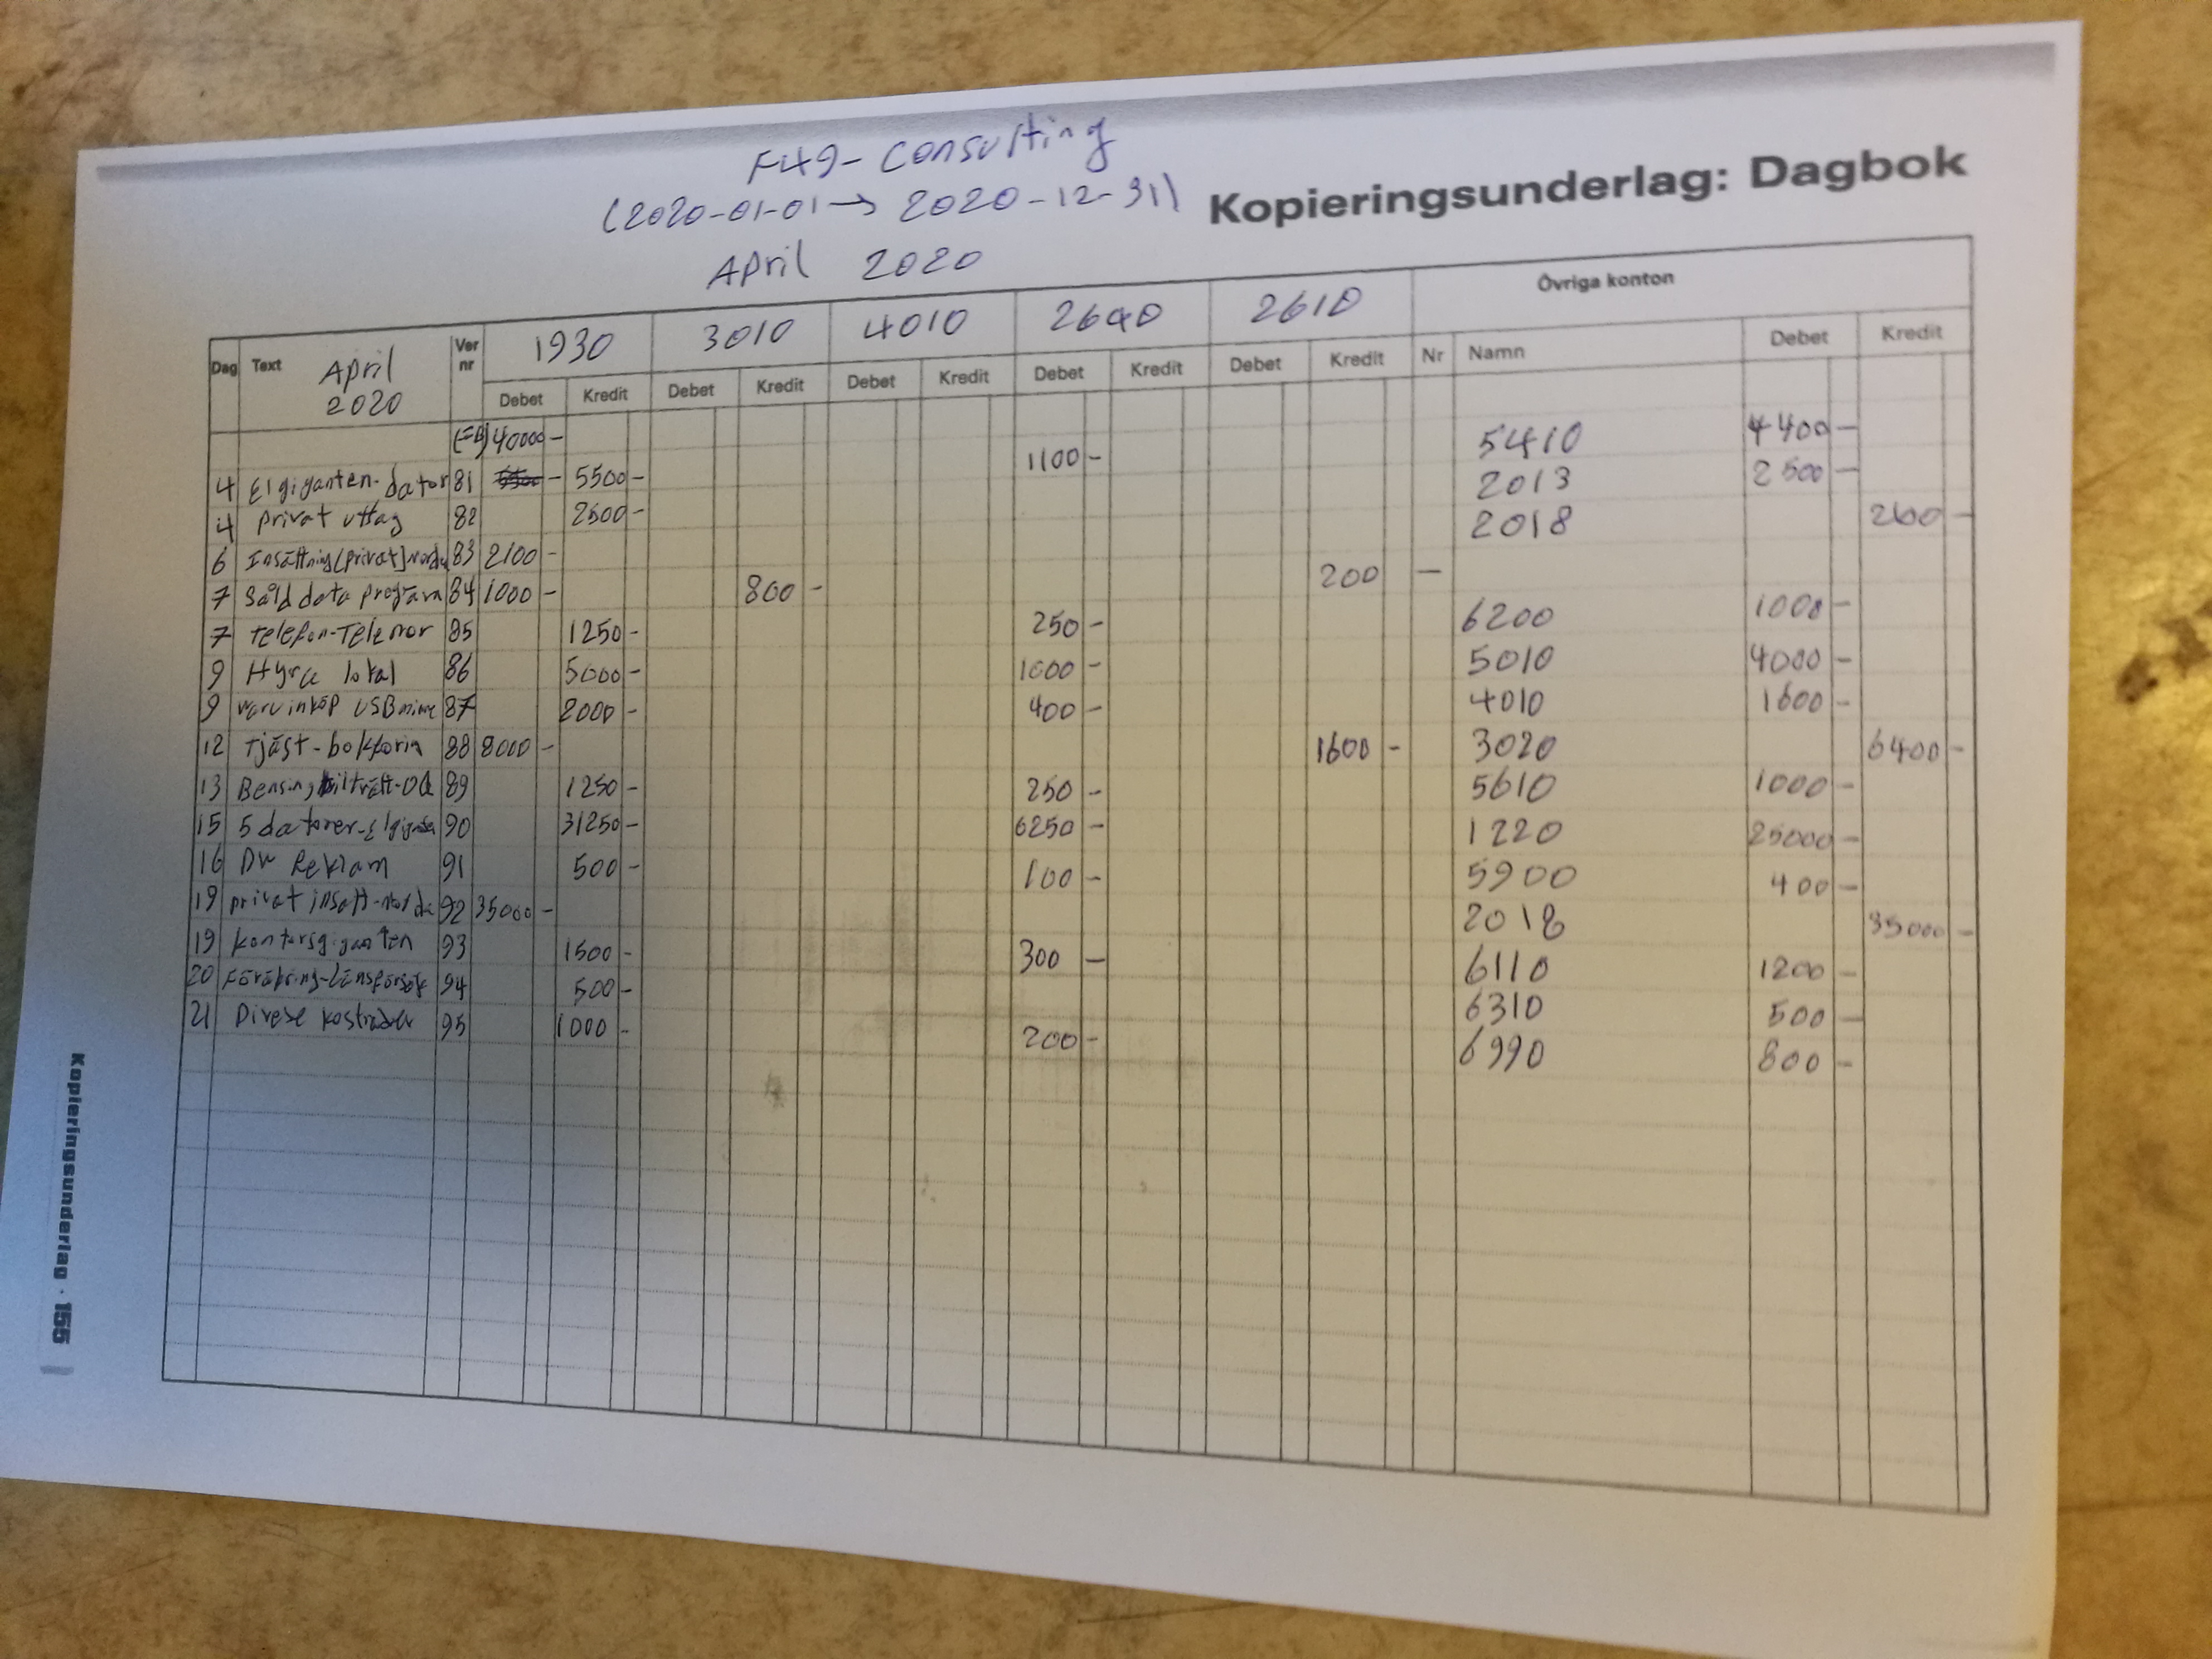 F49-Consulting
(2020-01-01→ 2020-12-31)
Kopieringsunderlag: Dagbok
April 2020
Dag Text April 2020 Ver nr 1930 3010 4010 2640 2610 Övriga konton
Debet Kredit Debet Kredit Debet Kredit Debet Kredit Debet Kredit Nr Namn Debet Kredit
40000-
4 Elgiganten-dator 81 5500- 1100- 5410 4400-
4 privat uttag 82 2500- 2013 2500-
6 Insättning(privat) 83 2100- 2018
7 Såld data program 84 1000- 800- 200 -
7 telefon-Telenor 85 1250- 250- 6200 1000-
9 Hyra lokal 86 5000- 1000- 5010 4000-
9 varuinköp USB 87 2000- 400- 4010 1600-
12 tjäst-bokföring 88 8000- 1600- 3020 6400-
13 89 1250- 250- 5610 1000-
15 5 datorer- 90 31250- 6250- 1220 25000-
16 DN Reklam 91 500- 100- 5900 400-
19 privat insätt- 92 35000- 2018 35000-
19 kontorsgiganten 93 1500- 300- 6110 1200-
20 94 500- 6310 500-
21 Divese 95 1000- 200- 6990 800-
Kopieringsunderlag · 155